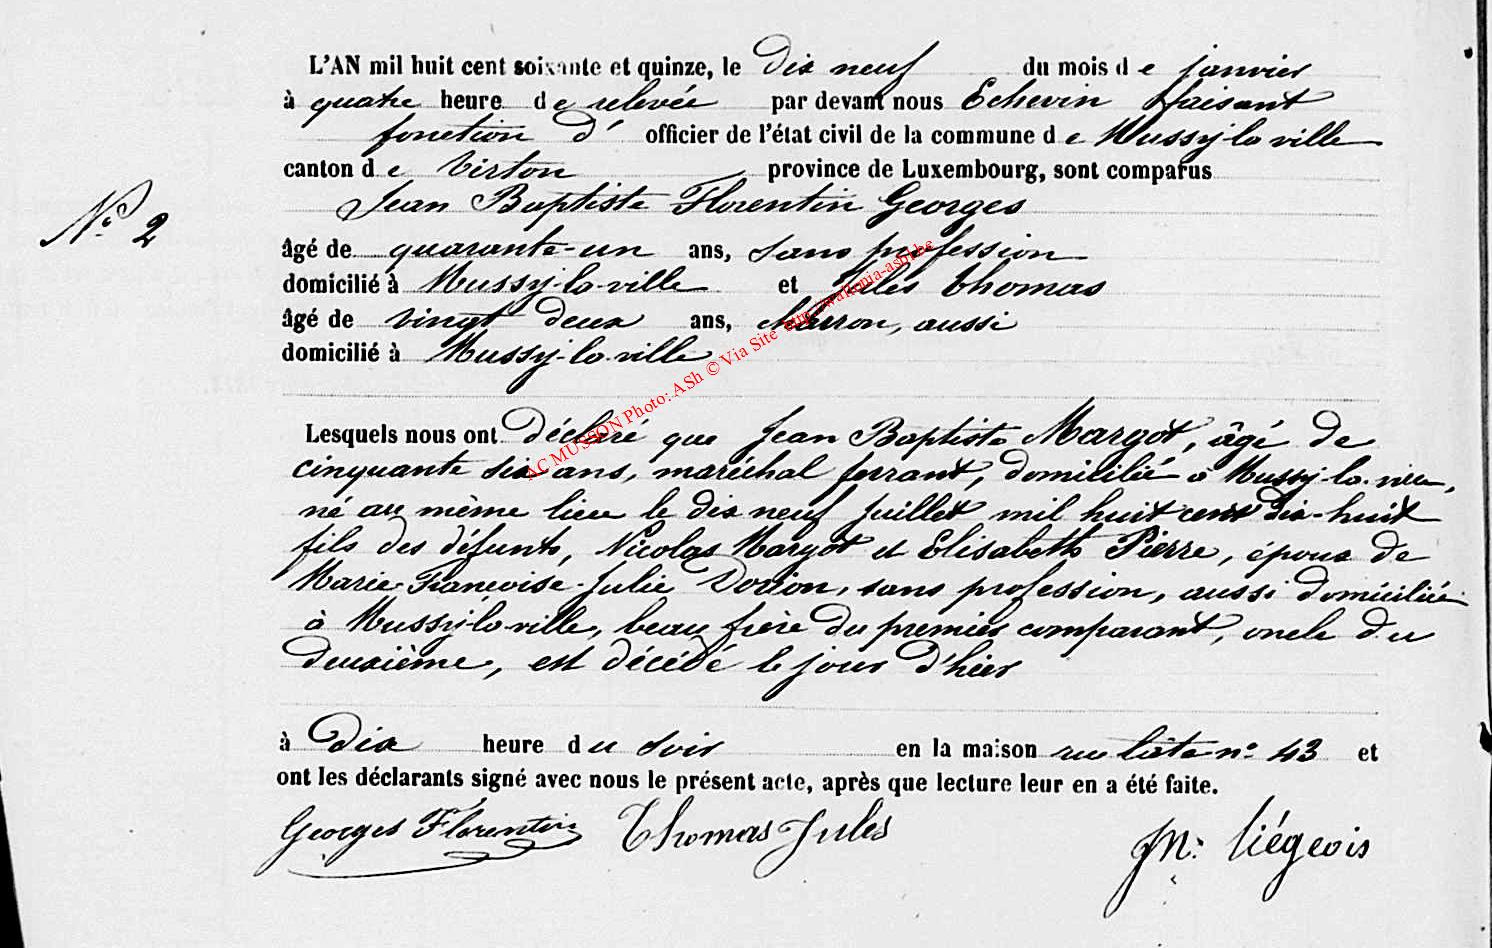 L'AN mil huit cent soixante et quinze, le dix neuf du mois de janvier
à quatre heure de relevée par devant nous Echevin faisant
fonction d' officier de l'état civil de la commune de Mussy-la-ville
canton de Virton province de Luxembourg, sont comparus
Jean Baptiste Florentin Georges
N° 2
âgé de quarante-un ans, sans profession
domicilié à Mussy-la-ville et Jules Thomas
âgé de vingt deux ans, aussi
domicilié à Mussy-la-ville
AC MUSSON Photo: ASh © Via Site
Lesquels nous ont déclaré que Jean Baptiste Margot, âgé de
cinquante six ans, maréchal ferrant, domicilié à Mussy-la-ville,
né au même lieu le dix neuf Juillet mil huit cent dix-huit
fils des défunts, Nicolas Margot et Elisabeth Pierre, époux de
Marie-Françoise-Julie sans profession, aussi domiciliée
à Mussy-la-ville, beau frère du premier comparant, oncle du
deuxième, est décédé le jour d'hier
à dix heure du soir en la maison n° 43 et
ont les déclarants signé avec nous le présent acte, après que lecture leur en a été faite.
Georges Florentin Thomas Jules Liégeois